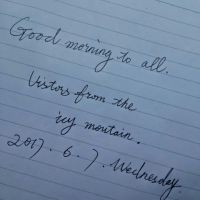 Good morning to all.
Vistors from the
icy moutain.
2017.6.7. Wednesday